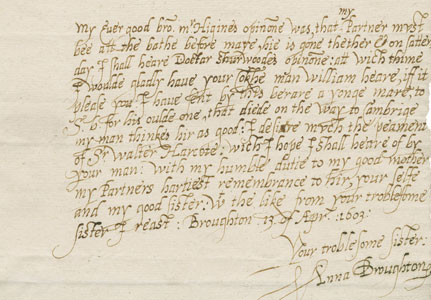 my Ever good bro. mr Higines opinone was, that my Partner must
bee att the bathe before maye, hie is gone thether & on satter
day I shall heare Doctar Shurwoodes opinone: att wich thime
I woulde gladly have your sokhe man william heare, if it
please you I have sent by this berare a yonge mare to
Sr. G for his oulde one, that diede on the way to Cambrige
my man thinkes hir as good: I desiere much the peament
of Sr walter Harcote: wich I hope I shall heare of by
your man: with my humble dutie to my good mother
my Partners hartiest remembrance to hir, your selfe
and my good sister: wt the like from your troblesome
sister I reast: Broughton 13 of Apr: 1603:
Your troblesome sister:
Anna Broughton